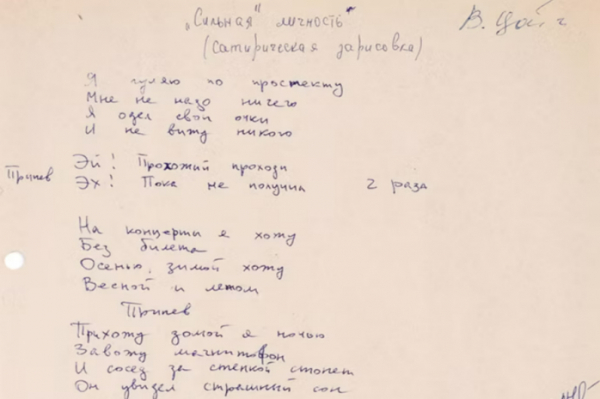 "Сильная" личность"
(сатирическая зарисовка)
В. Цой
Я гуляю по проспекту
Мне не надо ничего
Я одел свои очки
И не вижу никого
Припев Эй! Прохожий проходи
Эх! Пока не получил 2 раза
На концерты я хожу
Без билета
Осенью, зимой хожу
Весной и летом
Припев
Прихожу домой я ночью
Завожу магнитофон
И сосед за стенкой стонет
Он увидел страшный сон